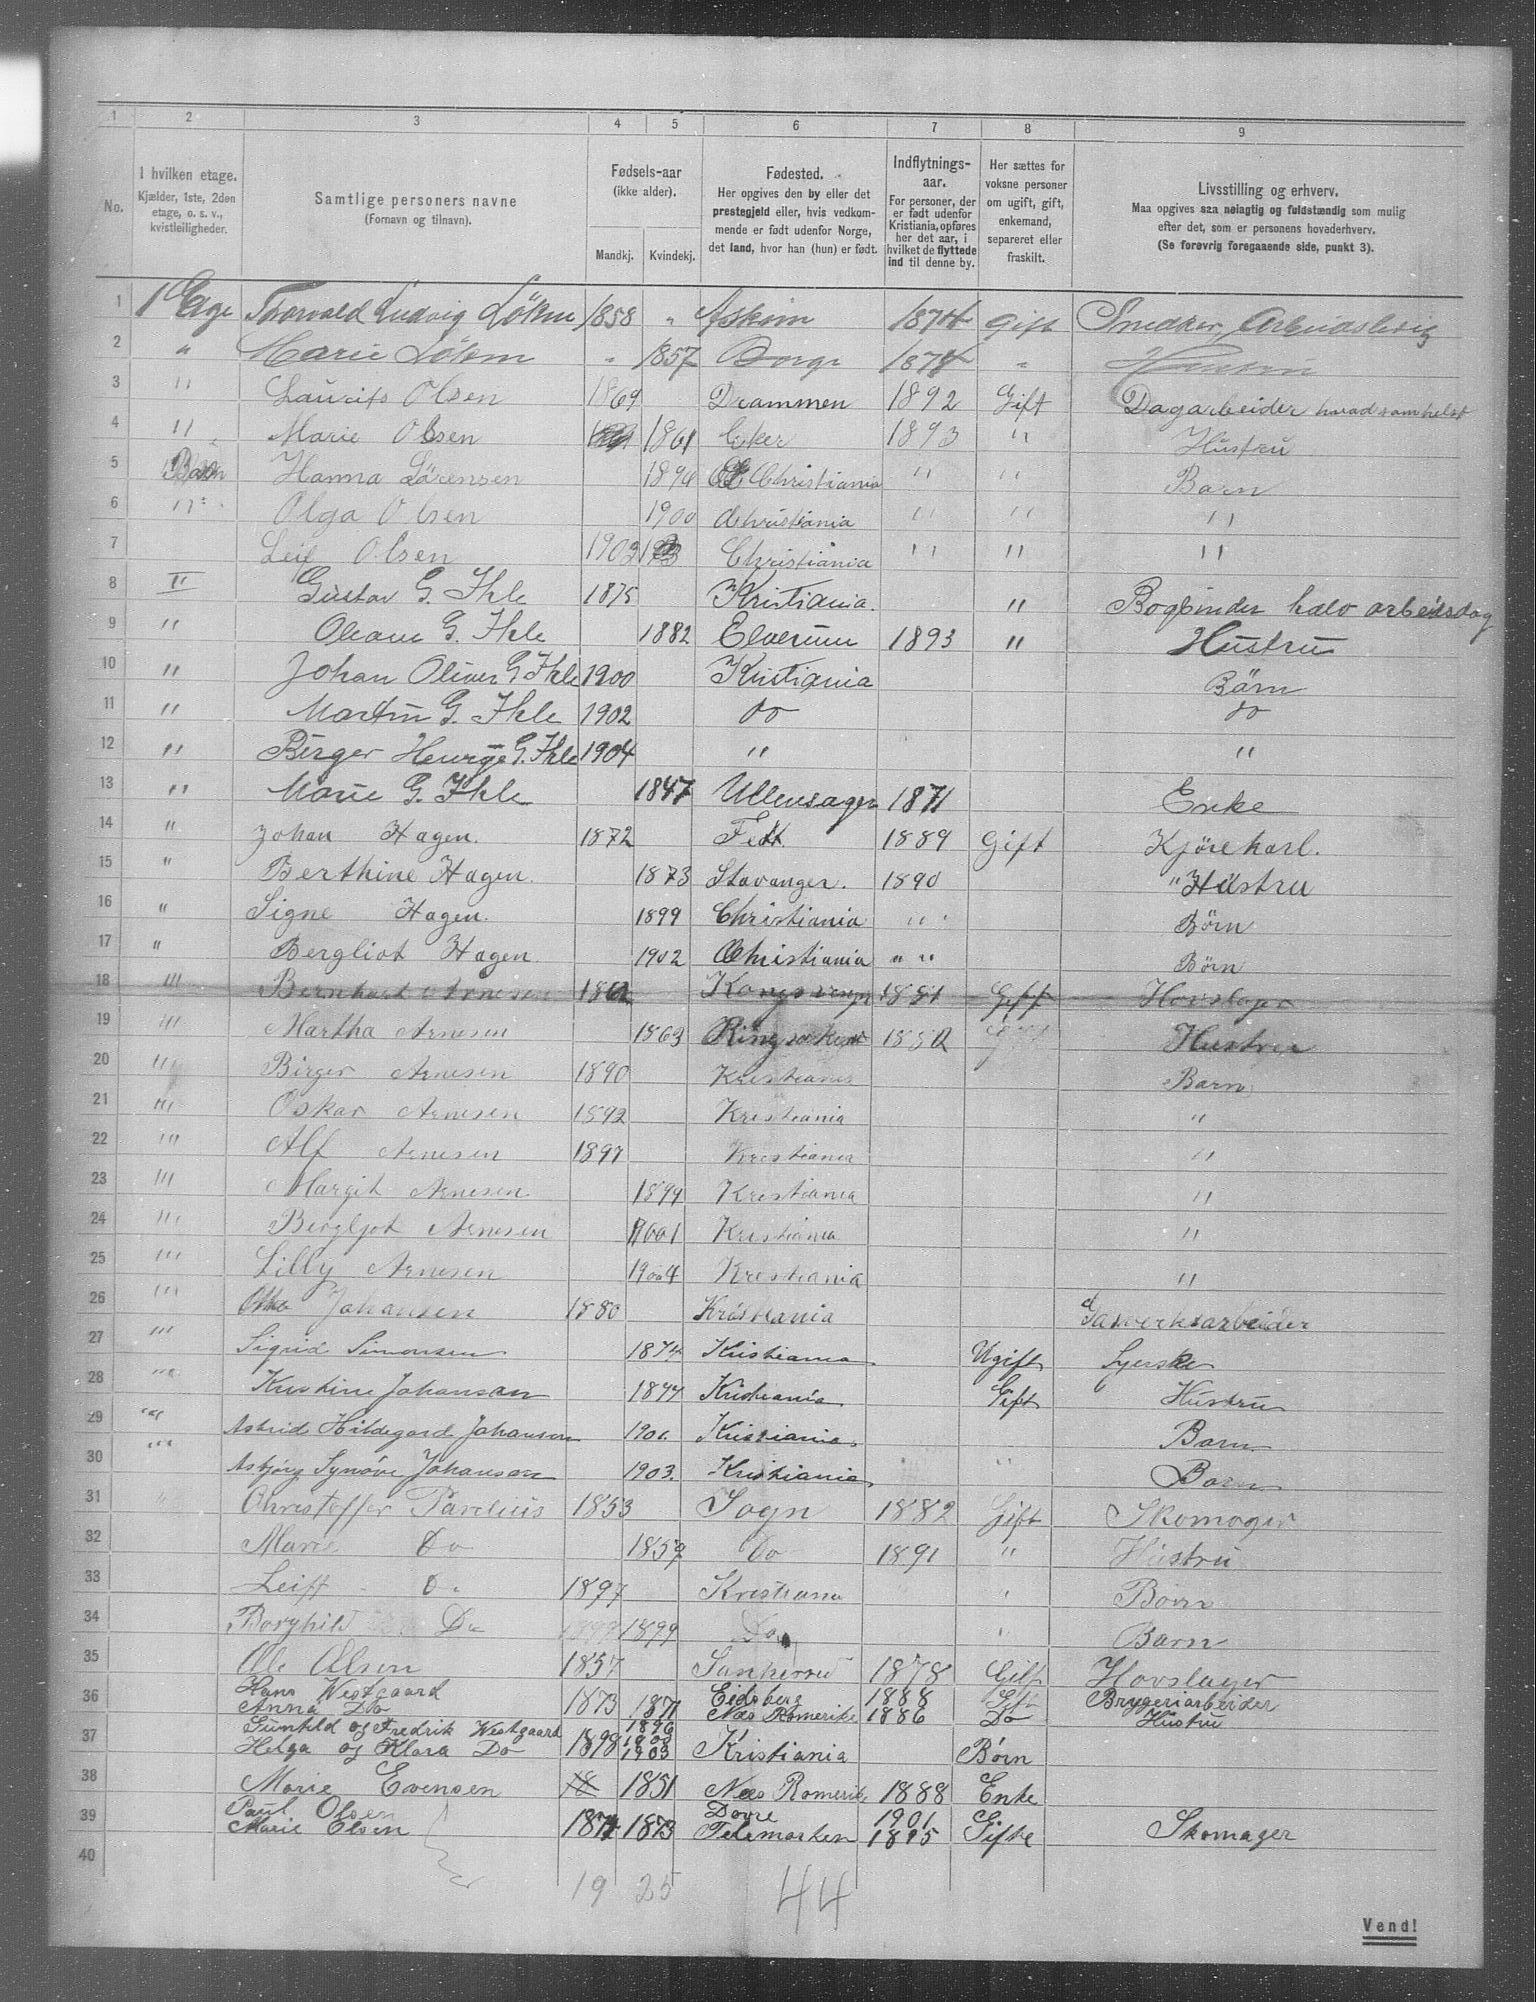 1 2 3 4 5 6 7 8 9
No.
I hvilken etage.
Kjælder, 1ste, 2den
etage, o. s. v.,
kvistleiligheder.
Samtlige personers navne
(Fornavn og tilnavn).
Fødsels-aar
(ikke alder).
Mandkj. Kvindekj.
Fødested.
Her opgives den by eller det
prestegjeld eller, hvis vedkom-
mende er født udenfor Norge,
det land, hvor han (hun) er født.
Indflytnings-
aar.
For personer, der
er født udenfor
Kristiania, opføres
her det aar, i
hvilket de flyttede
ind til denne by.
Her sættes for
voksne personer
om ugift, gift,
enkemand,
separeret eller
fraskilt.
Livsstilling og erhverv.
Maa opgives saa nøiagtig og fuldstændig som mulig
efter det, som er personens hovederhverv.
(Se forøvrig foregaaende side, punkt 3).
1 1 Etage Thorvald Ludvig Løkm 1858 " Askim 1874 Gift Snedker, Arbeidsledig
2 " Marie Løkm " 1857 Borge 1878 " Hustru
3 " Laurits Olsen 1869 Drammen 1892 Gift Dagarbeider hvad somhelst
4 " Marie Olsen 1861 Eker 1893 " Hustru
5 Barn Hanna Sørensen 1896 Christiania " " Barn
6 " Olga Olsen 1900 Christiania " " "
7 Leif Olsen 1902 Christiania " " "
8 II Gustav G. Ihle 1875 Kristiania. " Bogbinder halv arbeidsdag
9 " Oleane G. Ihle 1882 Elverum 1893 " Hustru
10 " Johan Oliver G. Ihle 1900 Kristiania Børn
11 " Martin G. Ihle 1902 do do
12 " Birger Henry G. Ihle 1904 " "
13 " Marie G. Ihle 1847 Ullensager 1871 Enke
14 " Johan Hagen. 1872 Fett. 1889 Gift Kjørekarl.
15 " Berthine Hagen. 1873 Stavanger. 1890 " Hustru
16 " Signe Hagen. 1899 Christiania " " Børn
17 " Bergliot Hagen. 1902 Christiania " " Børn
18 "' Bernhard Arnesen 1862 Kongsvinger 1881 Gift Hovslager
19 "' Martha Arnesen 1863 Ringsaker 1882 Gift Hustru
20 "' Birger Arnesen 1890 Kristiania Barn
21 "' Oskar Arnesen 1892 Kristiania "
22 "' Alf Arnesen 1897 Kristiania "
23 "' Margit Arnesen 1899 Kristiania "
24 "' Bergljot Arnesen 1901 Kristiania "
25 "' Lilly Arnesen 1904 Kristiania "
26 "' Otto Johansen 1880 Kristiania Gasverksarbeider
27 "' Sigrid Simonsen 1874 Kristiania Ugift Syerske
28 "' Kristine Johansen 1877 Kristiania Gift Hustru
29 "' Astrid Hildegard Johanson 1901. Kristiania Barn
30 "' Asbjørg Synøve Johanson 1903. Kristiania " Barn
31 " Christoffer Parelius 1853 Sogn 1882 Gift Skomager
32 Marie Do 1859 Do 1891 " Hustru
33 Leiff Do 1897 Kristiania " Børn
34 Borghild Do 1899 Do " Barn
35 Ole Olsen 1857 1878 Gift Hovslager
36 Hans Westgaard 1873 Eidsberg 1888 Gift Bryggeriarbeider
Anna Do 1871 Næs Romerike 1886 Do Hustru
37 Gunhild og Fredrik Westgaard 1898 1896 1900
Helga og Klara Do 1903 Kristiania Børn
38 Marie Evensen 18 1851 Næs Romerike 1888 Enke
39 Paul Olsen Dovre 1901
Marie Olsen 1874 1873 Telemarken 1895 Gifte Skomager
40
19 25 44
Vend!